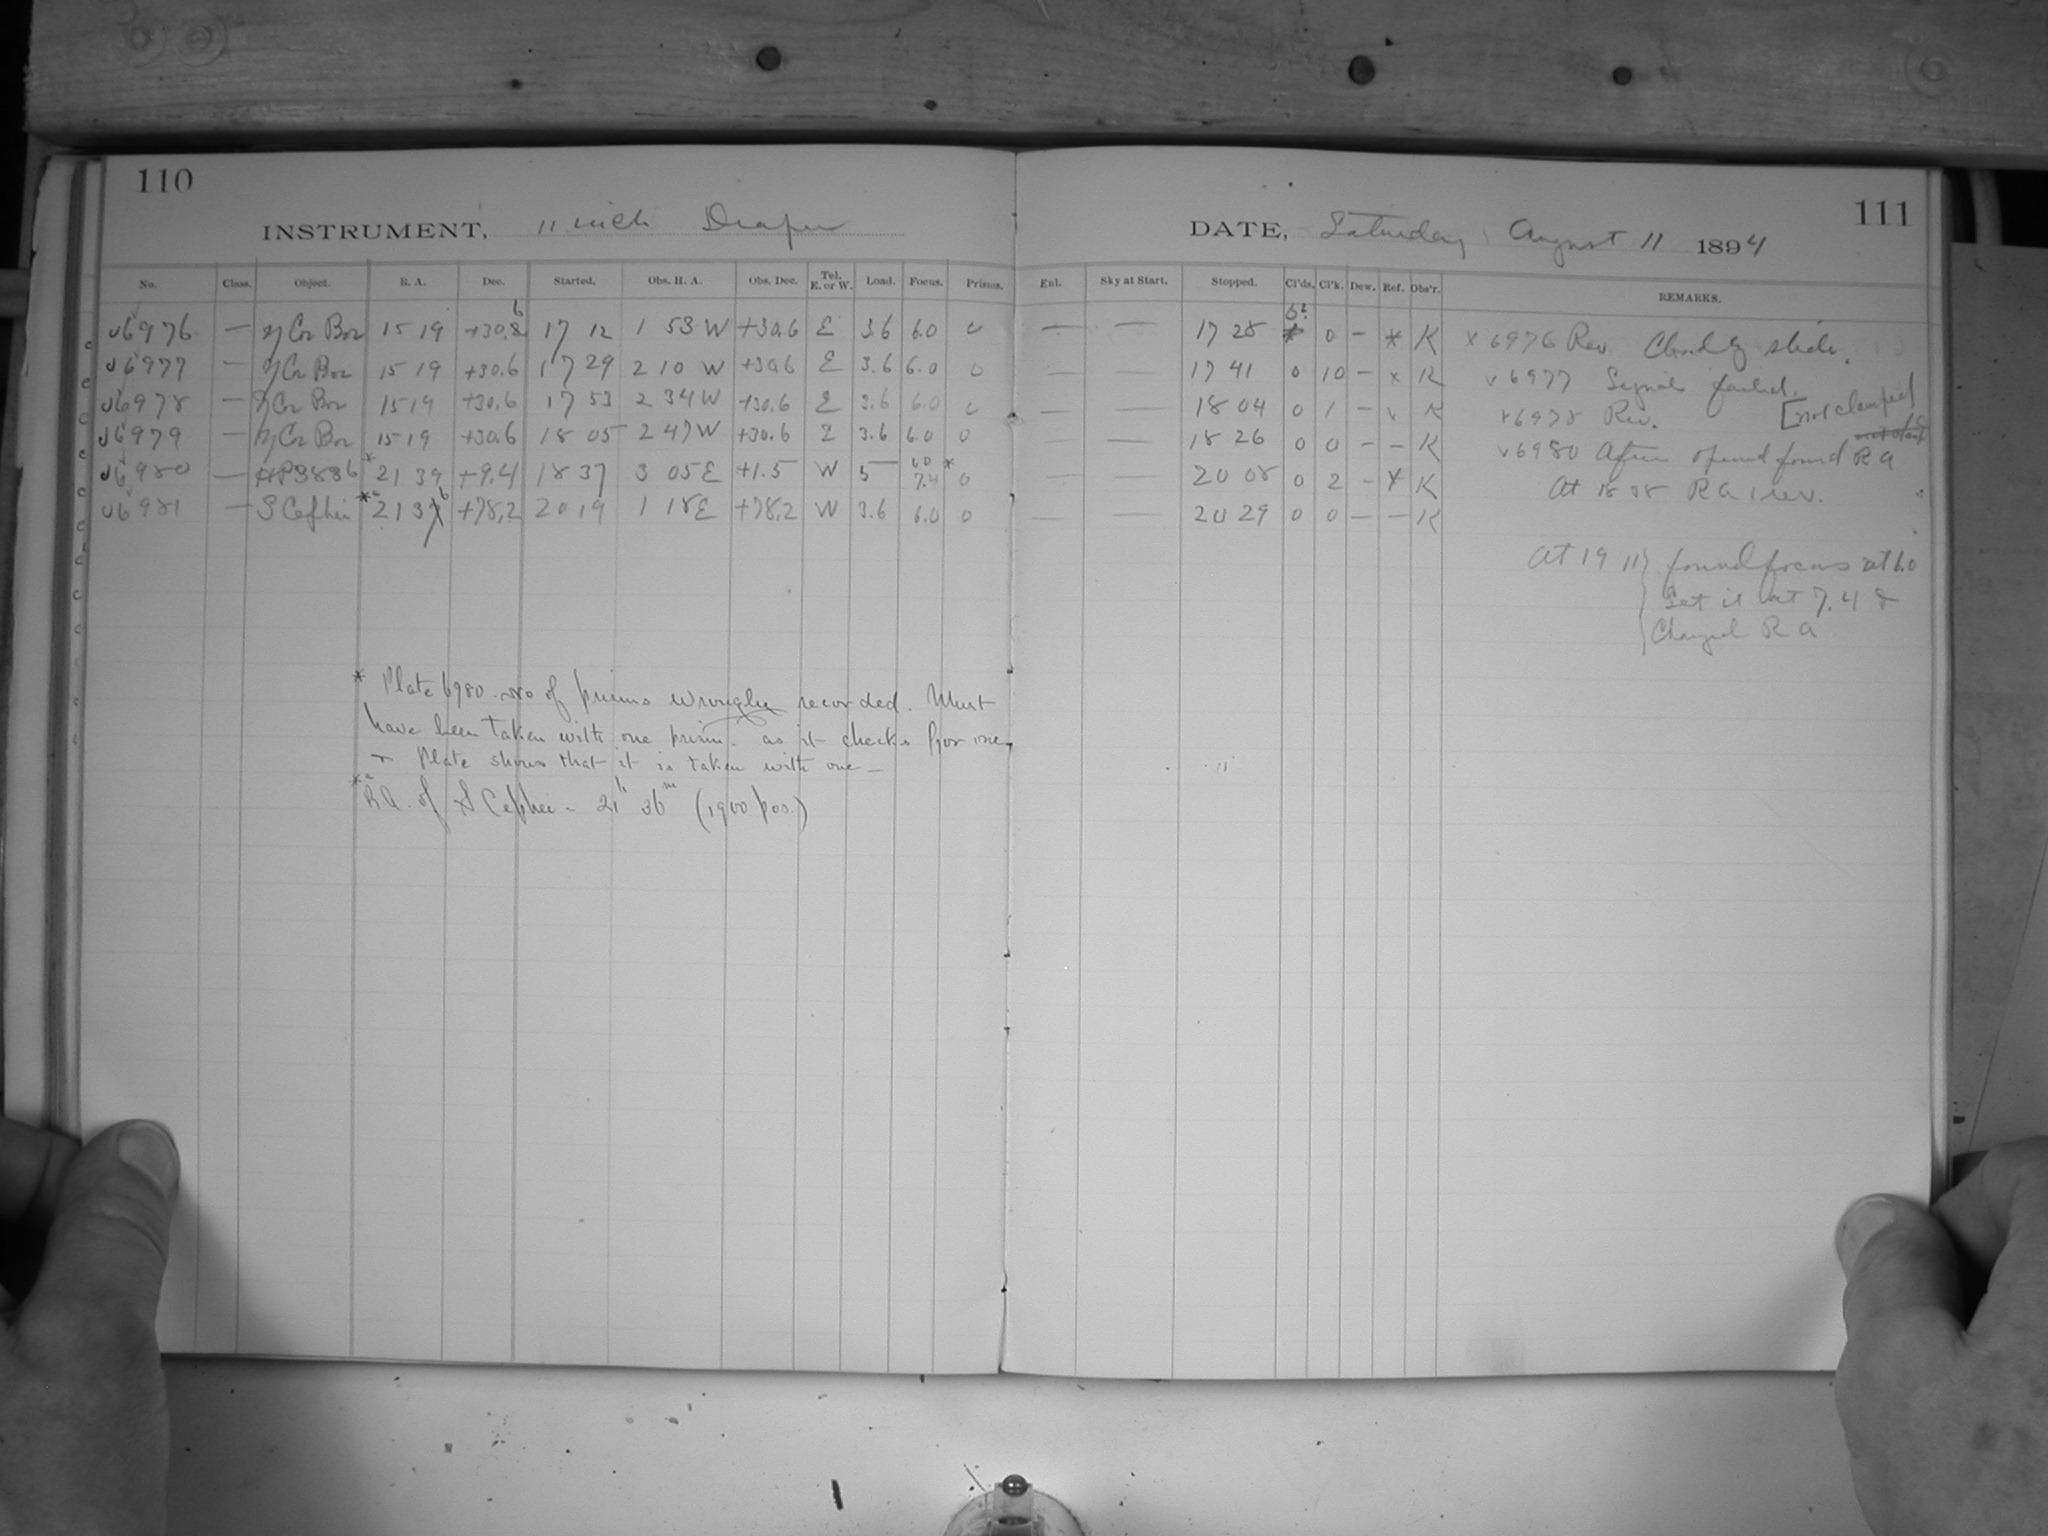 110
INSTRUMENT, 11 inch Draper
No. Class. Object. R. A. Dec. Started. Obs. H. A. Obs. Dec. Tel. E. or W. Load. Focus. Prisms.
6976 — η Cor Bor 15 19 +30.6 17 12 1 53 W +30.6 E 3.6 6.0 0
6977 — η Cor Bor 15 19 +30.6 17 29 2 10 W +30.6 E 3.6 6.0 0
6978 — η Cor Bor 15 19 +30.6 17 53 2 34 W +30.6 E 3.6 6.0 0
6979 — η Cor Bor 15 19 +30.6 18 05 2 47 W +30.6 E 3.6 6.0 0
6980 — HP3836 * 21 39 +9.4 18 37 3 05 E +1.5 W 5 6.0 7.4 * 0
6981 — S Cephei * 21 36 +78.2 20 19 1 18 E +78.2 W 3.6 6.0 0
* Plate 6980. No of prisms wrongly recorded. Must
have been taken with one prism. as it checks for one,
+ Plate shows that it is taken with one —
* R.A. of S Cephei = 21h 36m (1900 pos.)
111
DATE, Saturday, August 11 1894
Enl. Sky at Start. Stopped. Cl'ds. Cl'k. Dew. Ref. Obs'r. REMARKS.
— — 17 28 0 — * K x 6976 Rev. slide.
— — 17 41 0 10 — x K v 6977 Signal failed.
— — 18 04 0 1 — v K 6978 Rev. [not clamped
— — 18 26 0 0 — — K v 6980 After opened found R A
— — 20 08 0 2 — K At 18 58 R A 1 rev.
— — 20 29 0 0 — — K
At 19 11 } found focus at 6.0
Set it at 7.4 &
Changed R A